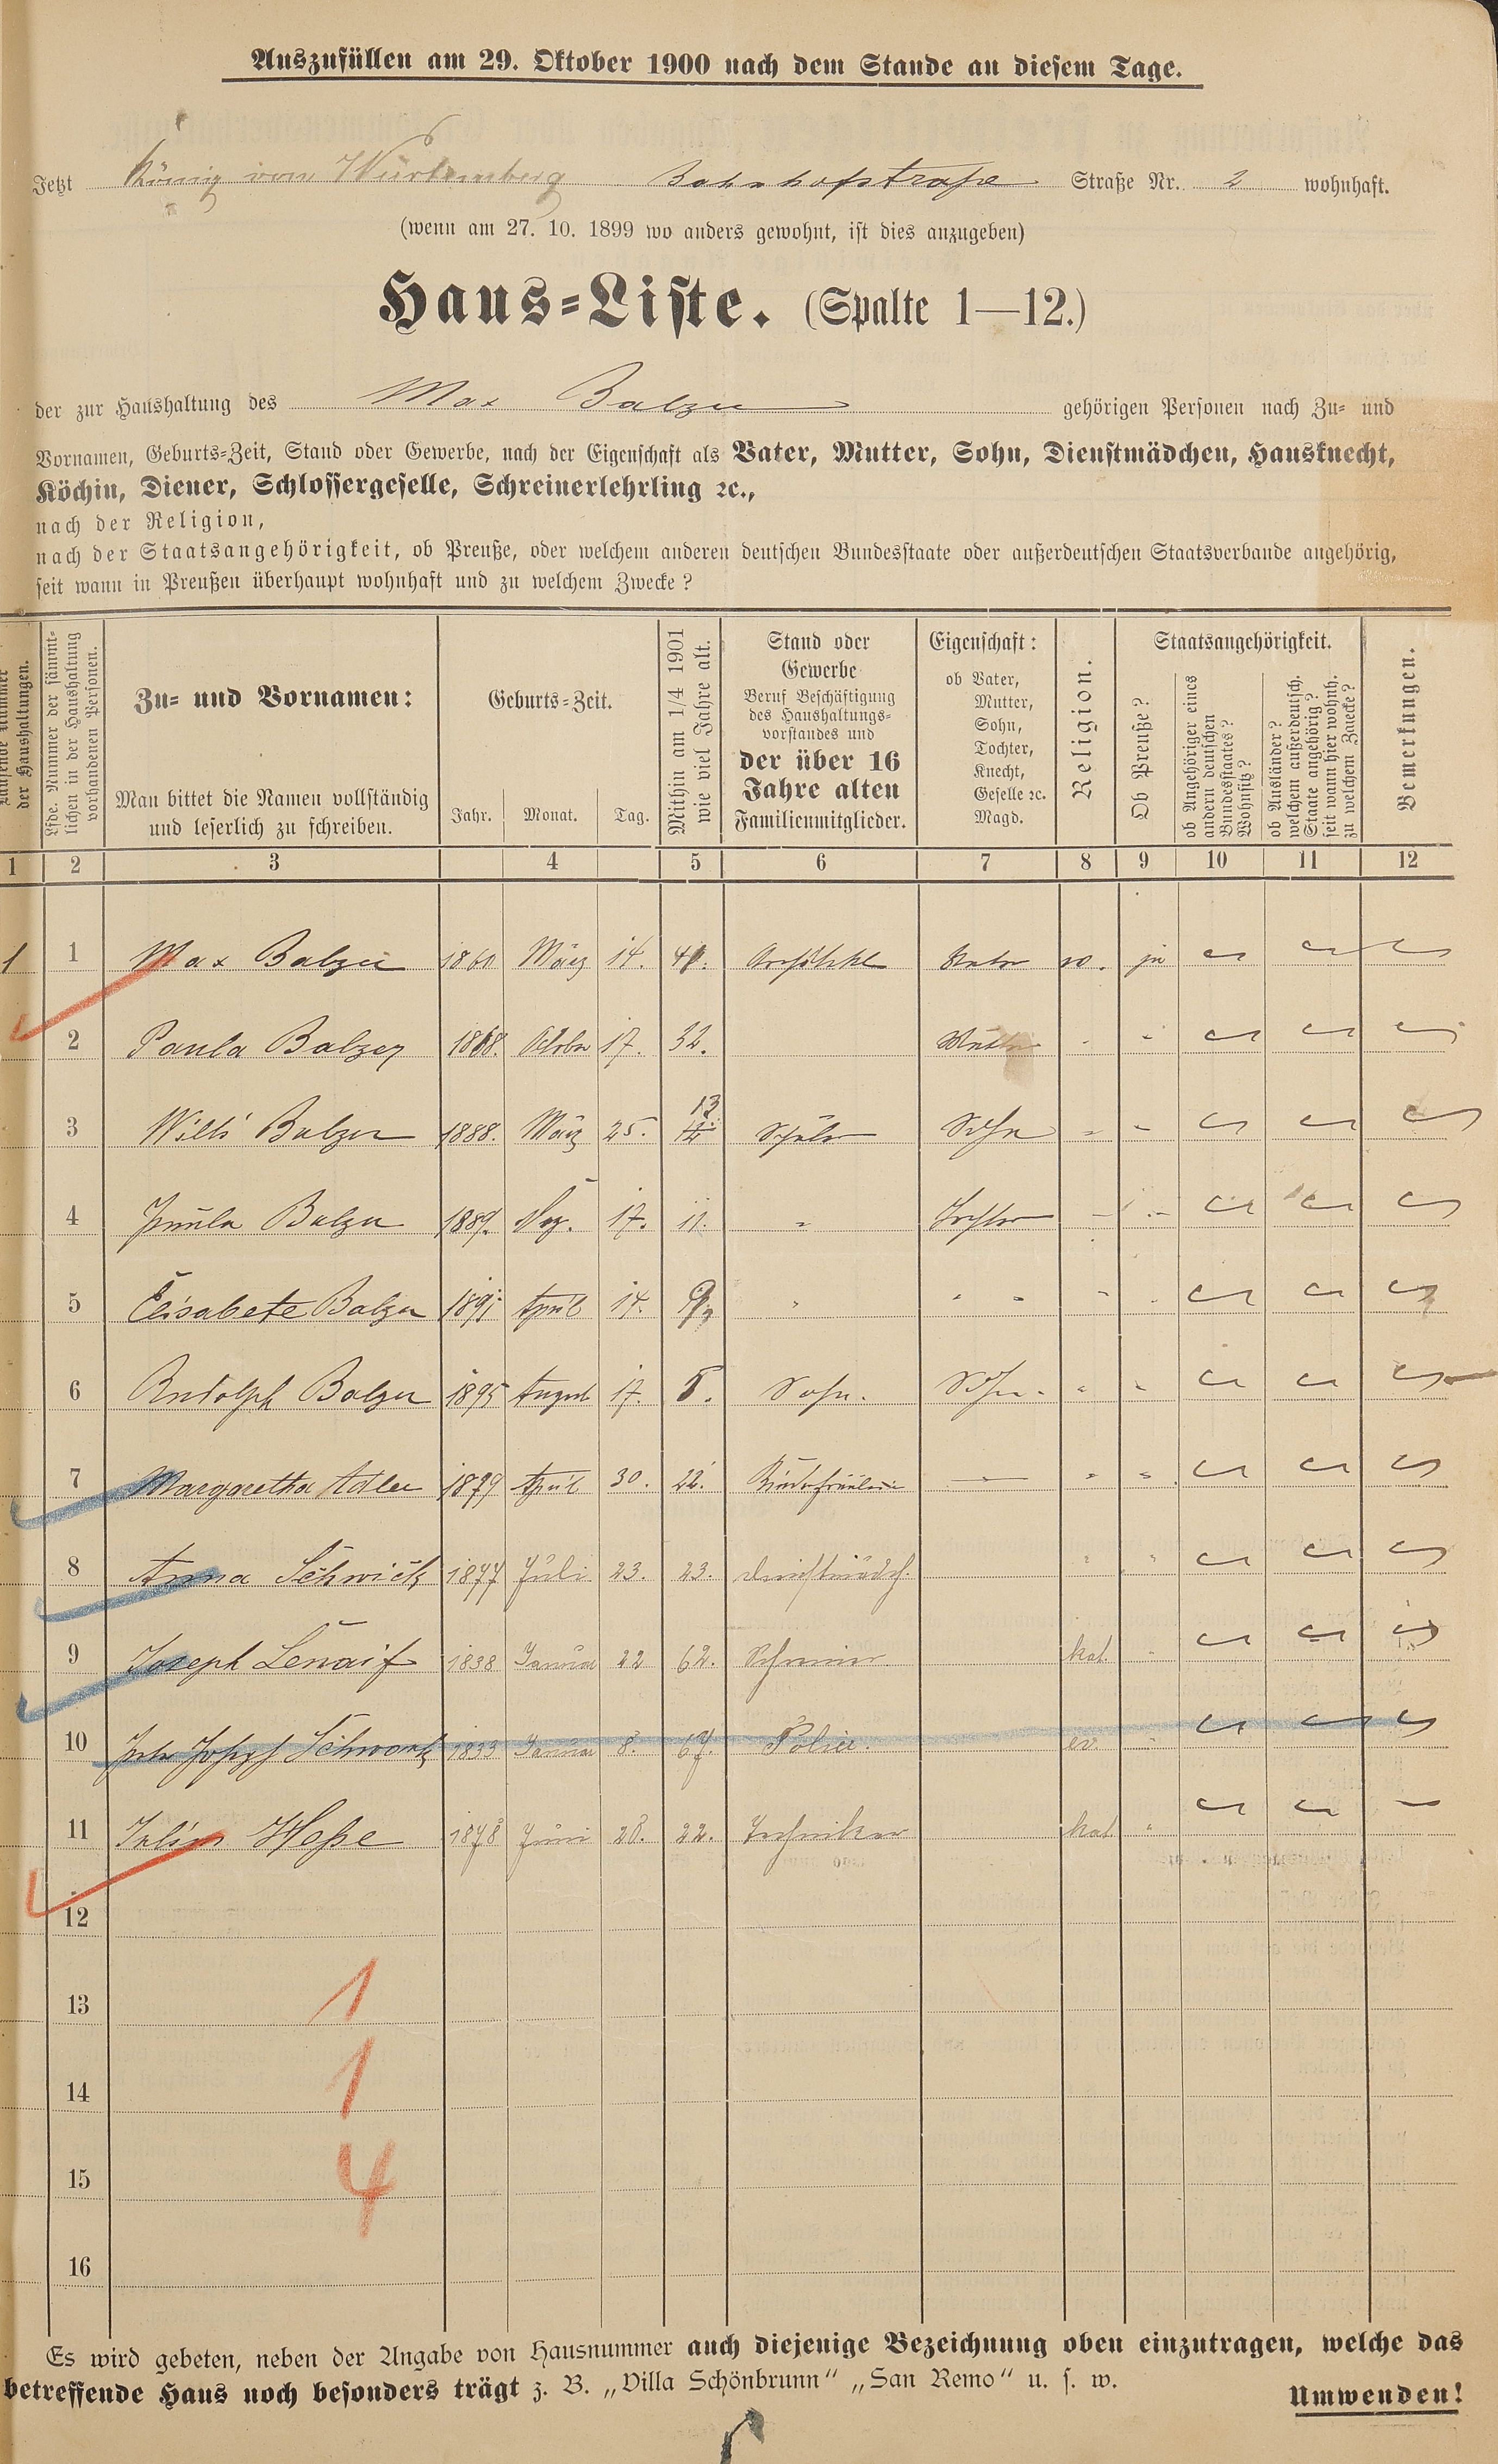 Auszufüllen am 29. Oktober 1900 nach dem Stande an diesem Tage.
Jetzt König von Würtemberg Bahnhofstraße Straße Nr. 2 wohnhaft.
(wenn am 27. 10. 1899 wo anders gewohnt, ist dies anzugeben)
Haus-Liste. (Spalte 1—12.)
der zur Haushaltung des Max Balzer gehörigen Personen nach Zu- und
Vornamen, Geburts-Zeit, Stand oder Gewerbe, nach der Eigenschaft als Vater, Mutter, Sohn, Dienstmädchen, Hausknecht,
Köchin, Diener, Schlossergeselle, Schreinerlehrling ꝛc.,
nach der Religion,
nach der Staatsangehörigkeit, ob Preuße, oder welchem anderen deutschen Bundesstaate oder außerdeutschen Staatsverbande angehörig,
seit wann in Preußen überhaupt wohnhaft und zu welchem Zwecke?
Laufende Nummer
der Haushaltungen.
Lfde. Nummer der sämmt-
lichen in der Haushaltung
vorhandenen Personen.
Zu- und Vornamen:
Man bittet die Namen vollständig
und leserlich zu schreiben.
Geburts-Zeit.
Jahr. Monat. Tag.
Mithin am 1/4 1901
wie viel Jahre alt.
Stand oder
Gewerbe
Beruf Beschäftigung
des Haushaltungs-
vorstandes und
der über 16
Jahre alten
Familienmitglieder.
Eigenschaft:
ob Vater,
Mutter,
Sohn,
Tochter,
Knecht,
Geselle ꝛc.
Magd.
Religion.
Staatsangehörigkeit.
Ob Preuße?
ob Angehöriger eines
andern deutschen
Bundesstaates?
Wohnsitz?
ob Ausländer?
welchem außerdeutsch.
Staate angehörig?
seit wann hier wohnh.
zu welchem Zwecke?
Bemerkungen.
1 2 3 4 5 6 7 8 9 10 11 12
1 1 Max Balzer 1860 März 14. 41. Vater ja
2 Paula Balzer 1868. October 17. 32. Mutter
3 Willi Balzer 1888. März 25. 12 13. Schüler Sohn
4 Paula Balzer 1889. 17. 11. " Tochter
5 Elisabete Balzer 1891 April 14. 9 " " "
6 Rudolph Balzer 1895 August 17. 5. Sohn. Sohn.
7 Margaretha Adler 1879 April 30. 22. Kinderfräulein
8 Anna Schwick 1877 Juli 23. 23. Dienstmädch.
9 Joseph 1838 Januar 22 62. Schreiner kat.
10 Joseph Schwartz 1833 Januar 8. 67. ev.
11 Julius Heße 1878 Juni 28. 22. Techniker kat
12
13 1
14 1
15 4
16
Es wird gebeten, neben der Angabe von Hausnummer auch diejenige Bezeichnung oben einzutragen, welche das
betreffende Haus noch besonders trägt z. B. „Villa Schönbrunn“ „San Remo“ u. s. w.
Umwenden!